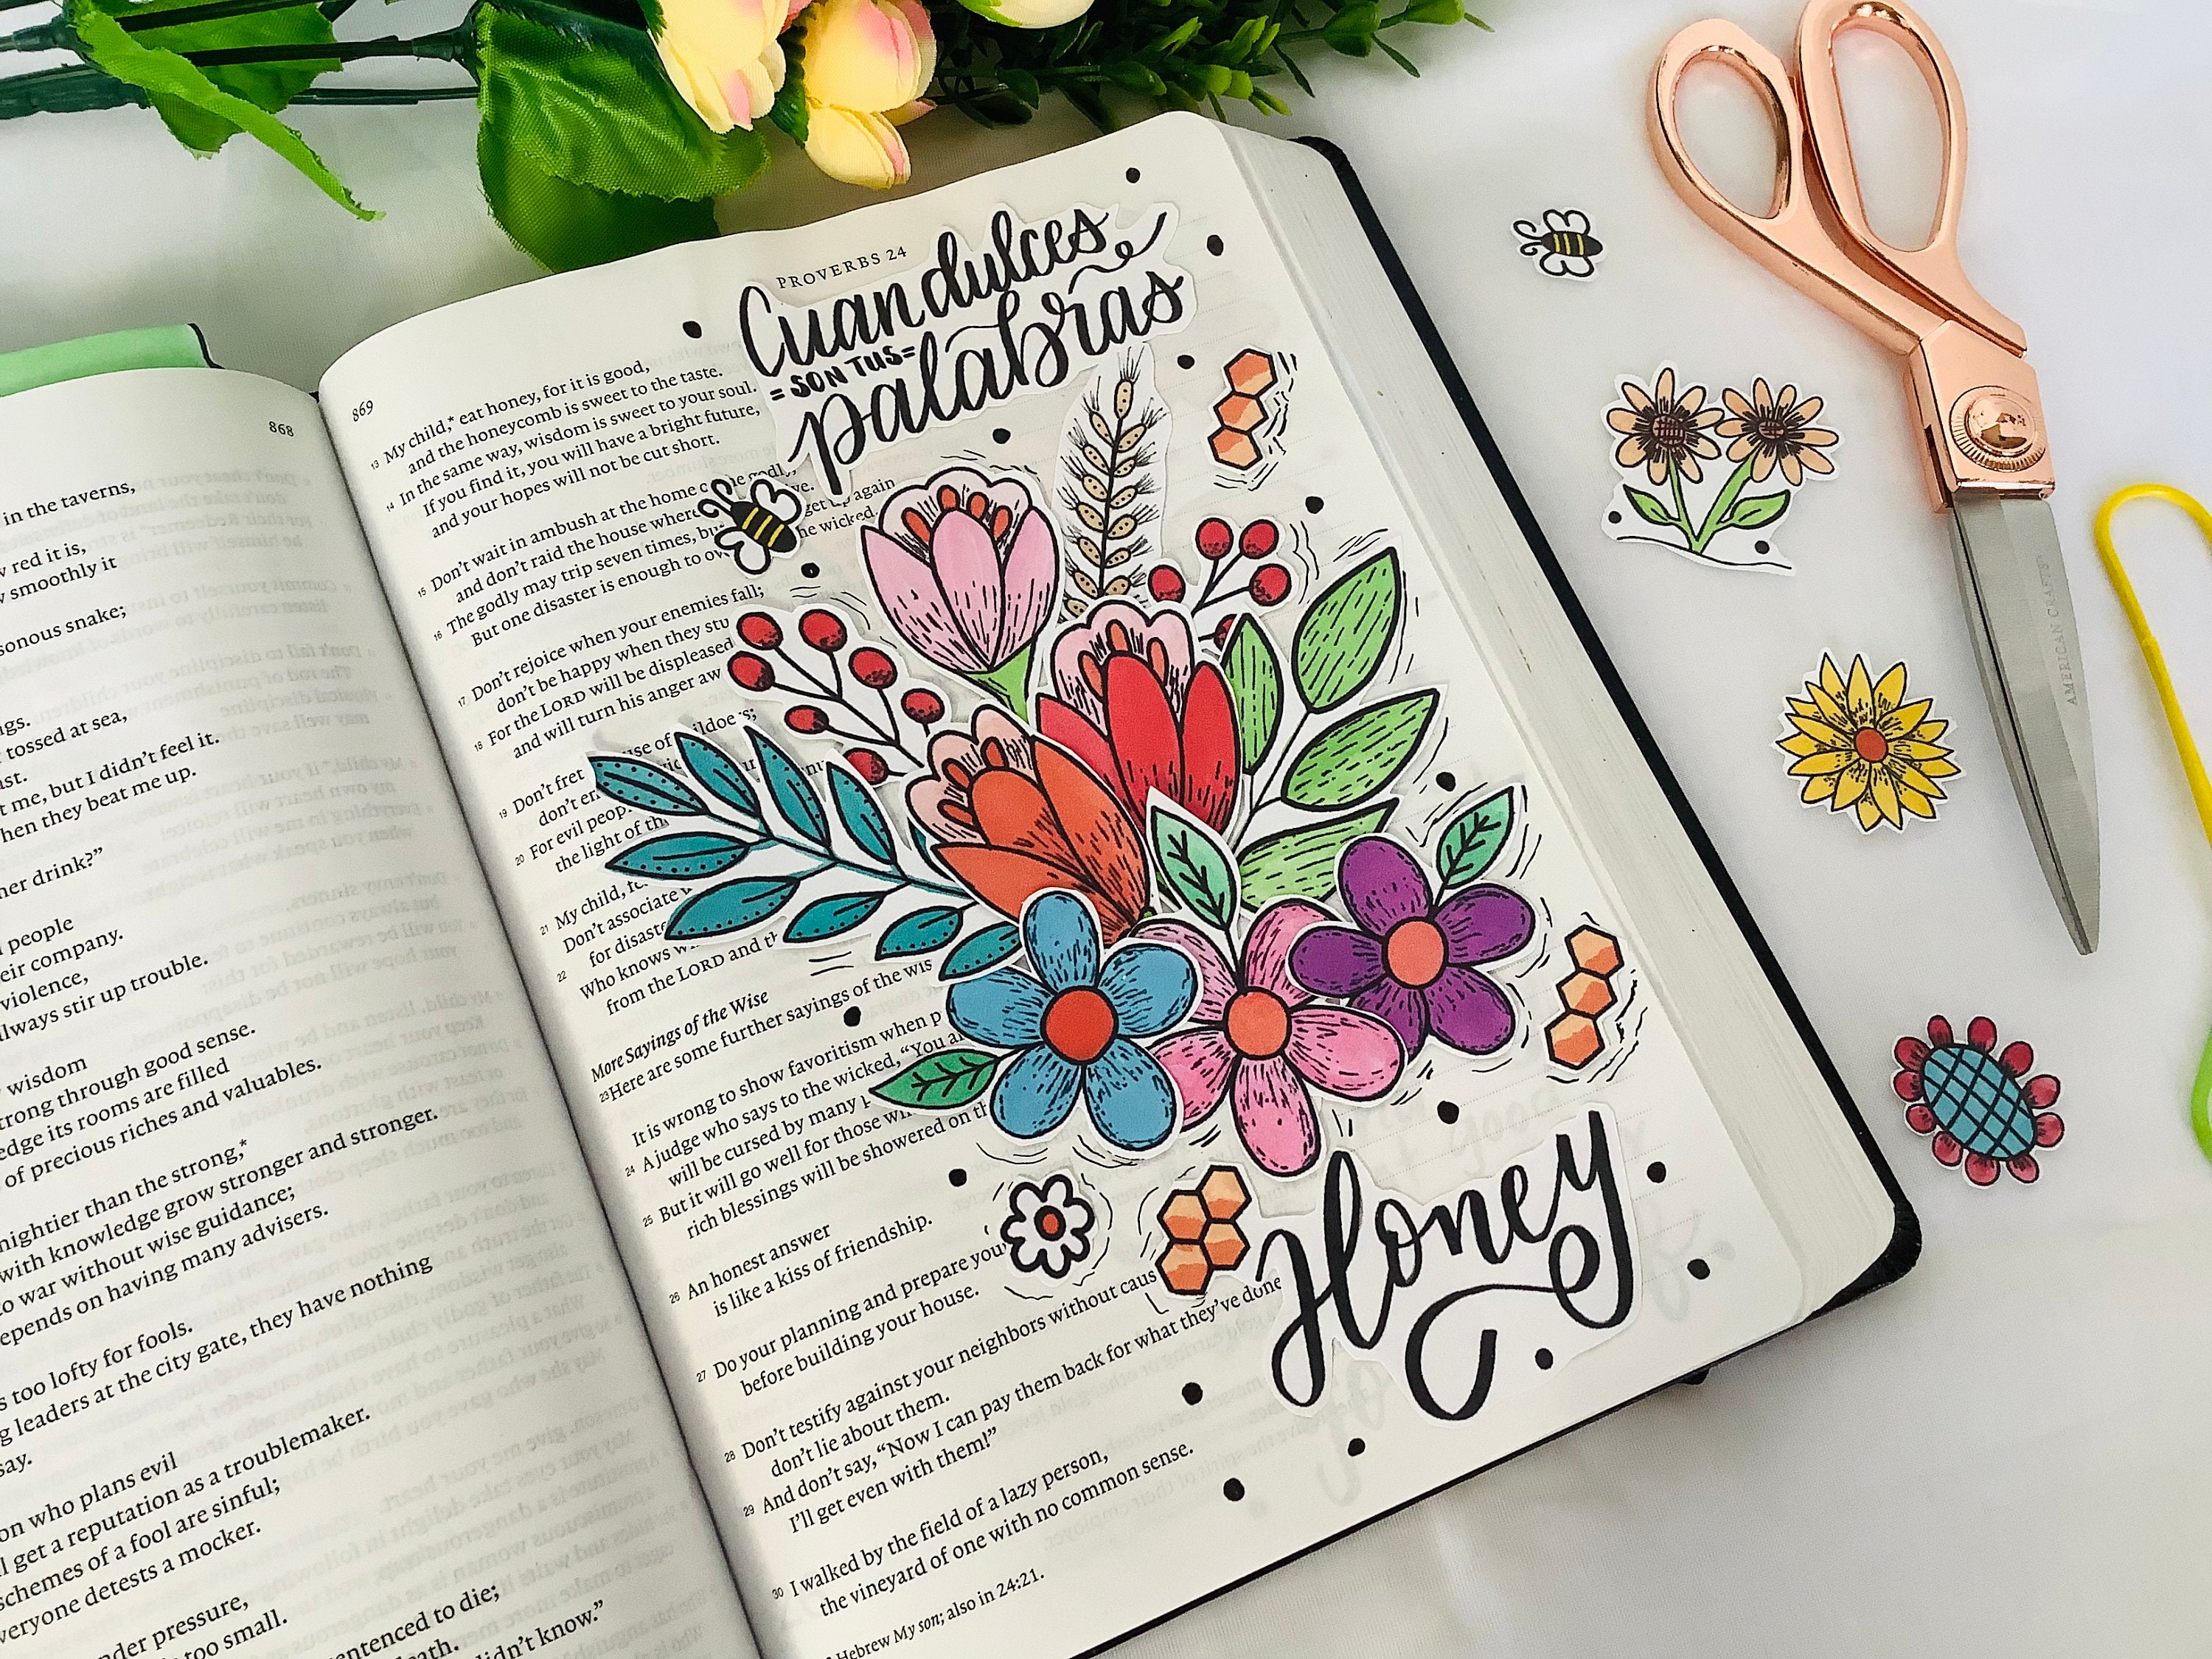 868
in the taverns,
red it is,
smoothly it
snake;
tossed at sea,
me, but I didn't feel it.
they beat me up.
drink?"
people
company.
violence,
always stir up trouble.
wisdom
strong through good sense.
its rooms are filled
of precious riches and valuables.
than the strong,*
with knowledge grow stronger and stronger.
war without wise guidance;
depends on having many advisers.
too lofty for fools.
leaders at the city gate, they have nothing
say.
who plans evil
get a reputation as a troublemaker.
schemes of a fool are sinful;
everyone detests a mocker.
under pressure,
too small.
sentenced to die;
didn't know."
869
PROVERBS 24
Cuan dulces
= SON TUS =
palabras
13 My child,* eat honey, for it is good,
and the honeycomb is sweet to the taste.
14 In the same way, wisdom is sweet to your soul.
If you find it, you will have a bright future,
and your hopes will not be cut short.
15 Don't wait in ambush at the home godly,
and don't raid the house where
16 The godly may trip seven times, but get up again
But one disaster is enough to the wicked.
17 Don't rejoice when your enemies fall;
don't be happy when they
18 For the LORD will be displeased
and will turn his anger
19 Don't fret
don't
20 For evil
the light of
21 My child,
Don't associate
22 for
Who knows
from the LORD and
More Sayings of the Wise
23 Here are some further sayings of the
It is wrong to show favoritism when
24 A judge who says to the wicked, "You
will be cursed by many
25 But it will go well for those
rich blessings will be showered on
26 An honest answer
is like a kiss of friendship.
27 Do your planning and prepare
before building your house.
28 Don't testify against your neighbors without
don't lie about them.
29 And don't say, "Now I can pay them back for what they've done
I'll get even with them!"
30 I walked by the field of a lazy person,
the vineyard of one with no common sense.
Hebrew My son; also in 24:21.
Honey
AMERICAN CRAFTS